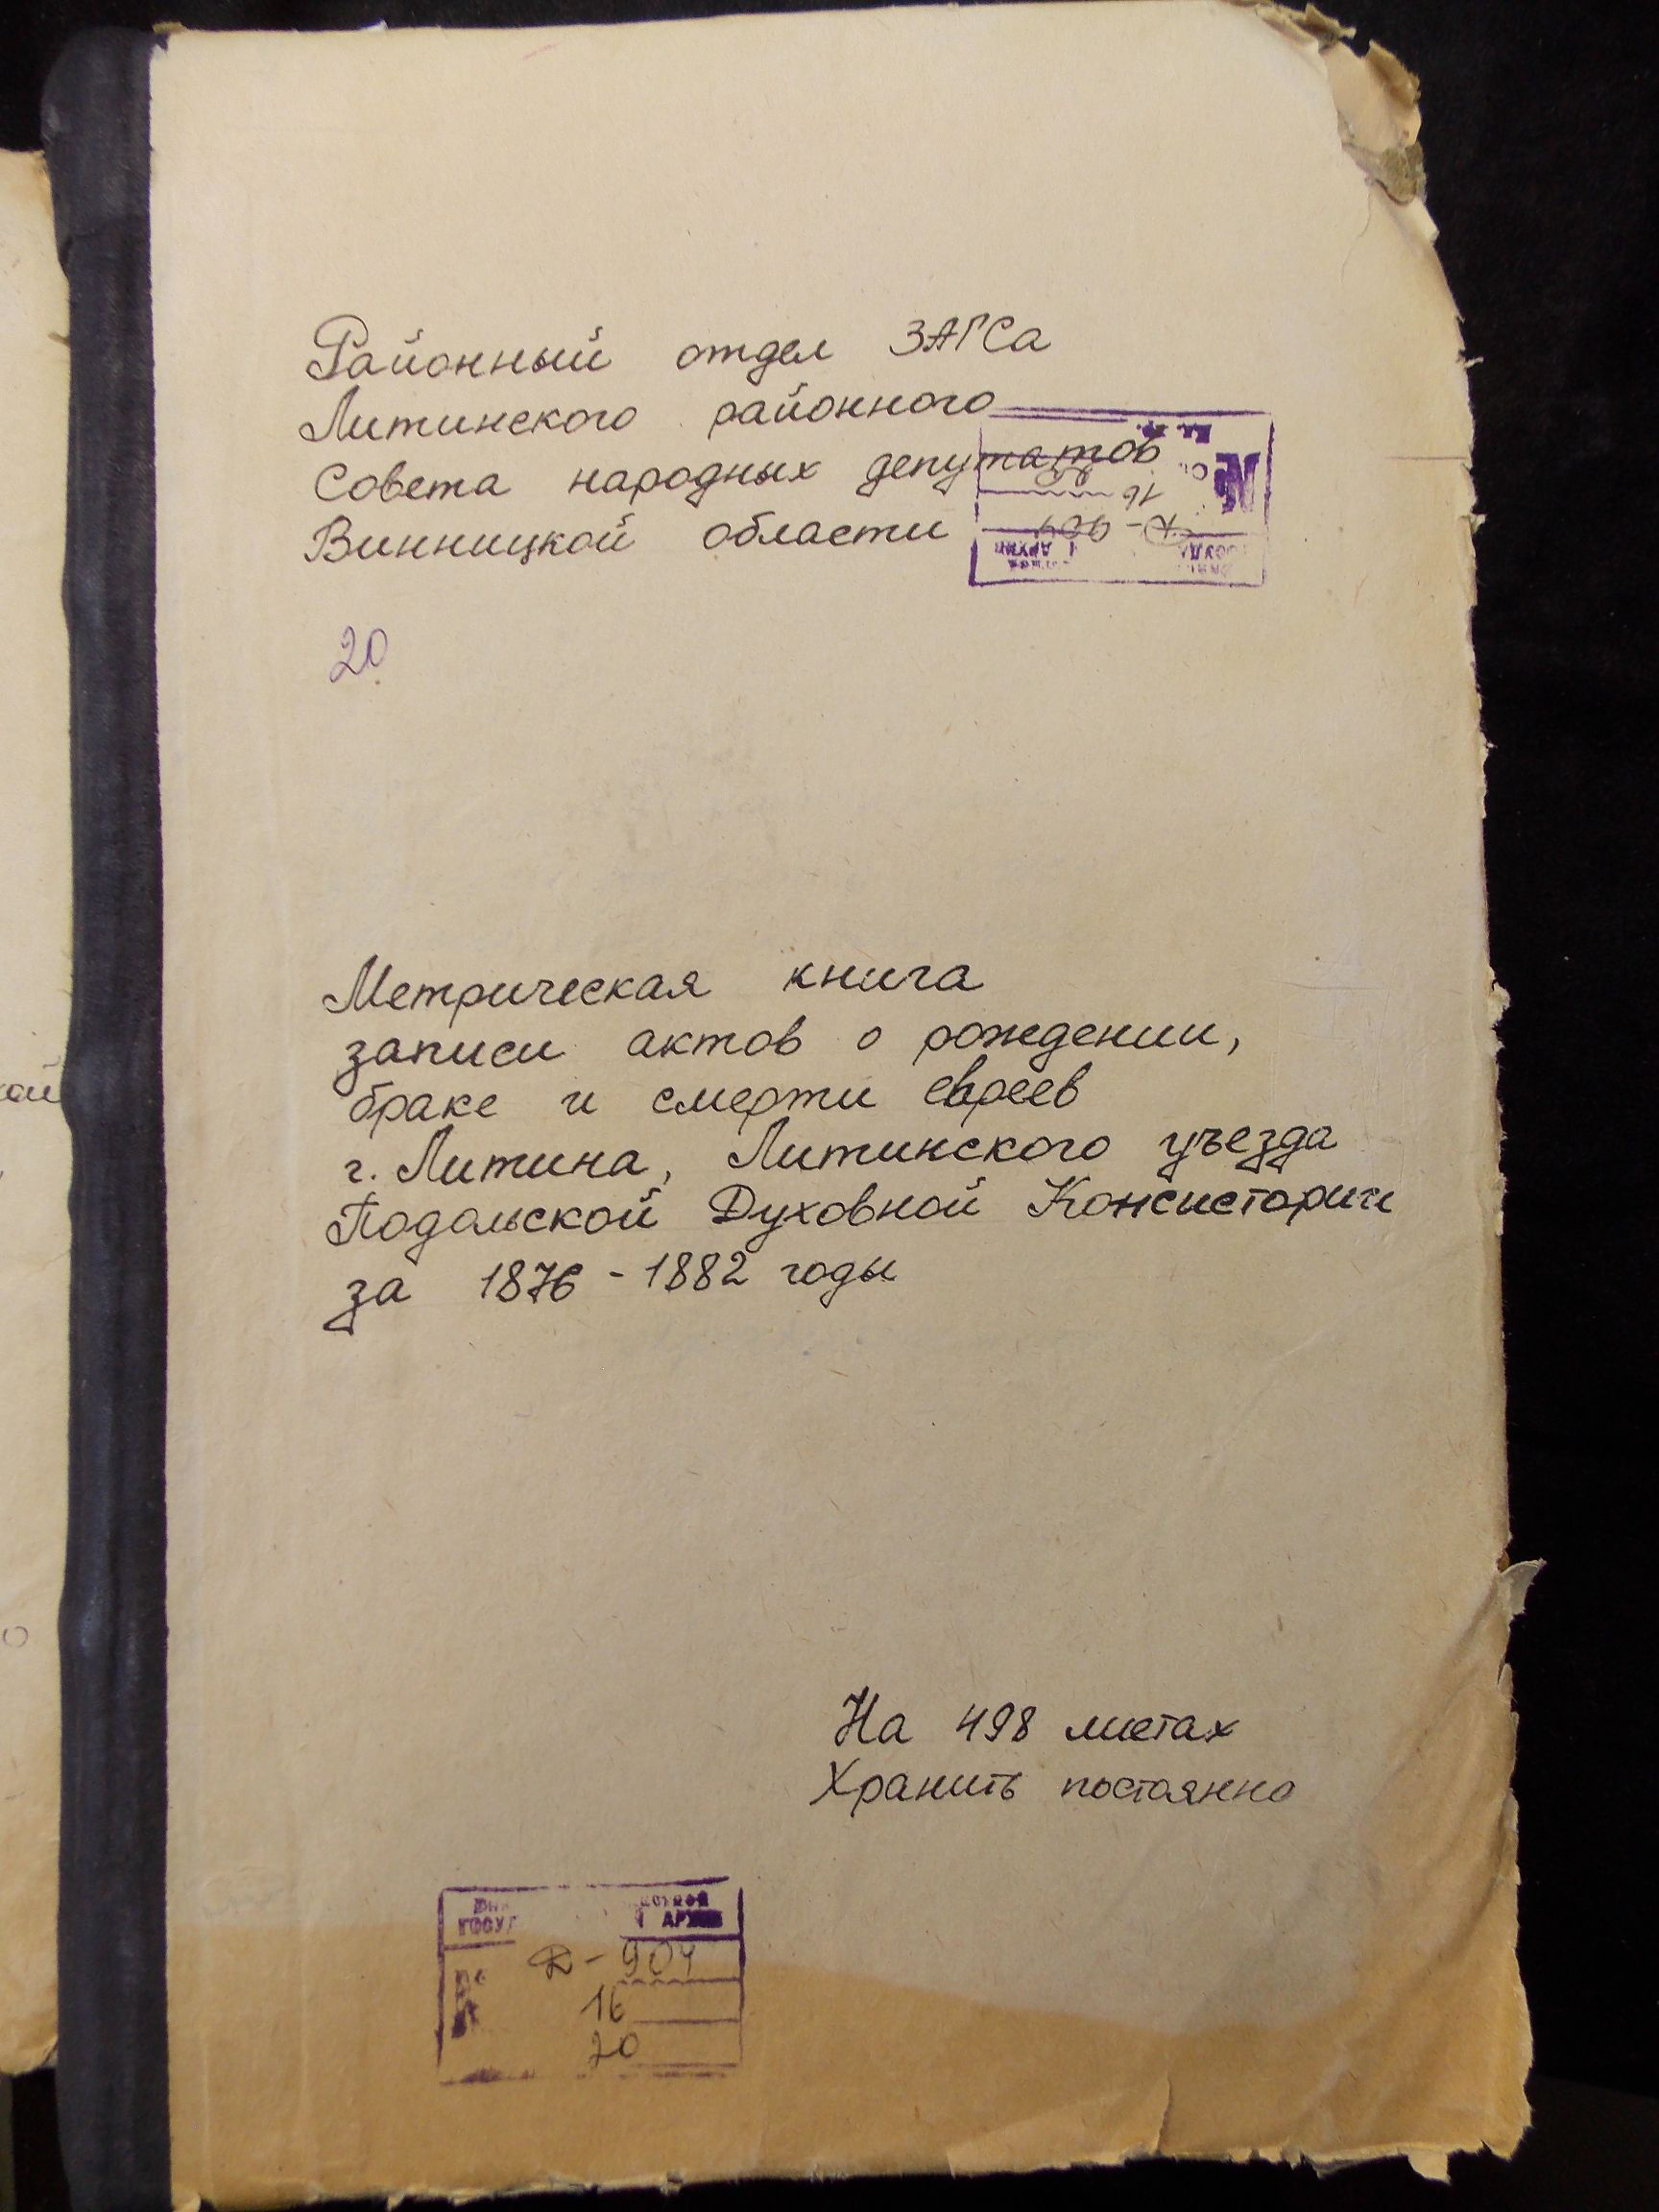 Районный отдел ЗАГСа
Литинского районного
Совета народных депутатов
Винницкой области
№
16
20
Метрическая книга
записи актов о рождении,
браке и смерти евреев
г. Литина, Литинского уъезда
Подольской Духовной Консистории
за 1876 - 1882 годы
На 498 листах
Хранить постоянно
АРХИВ
Д - 904
16
20